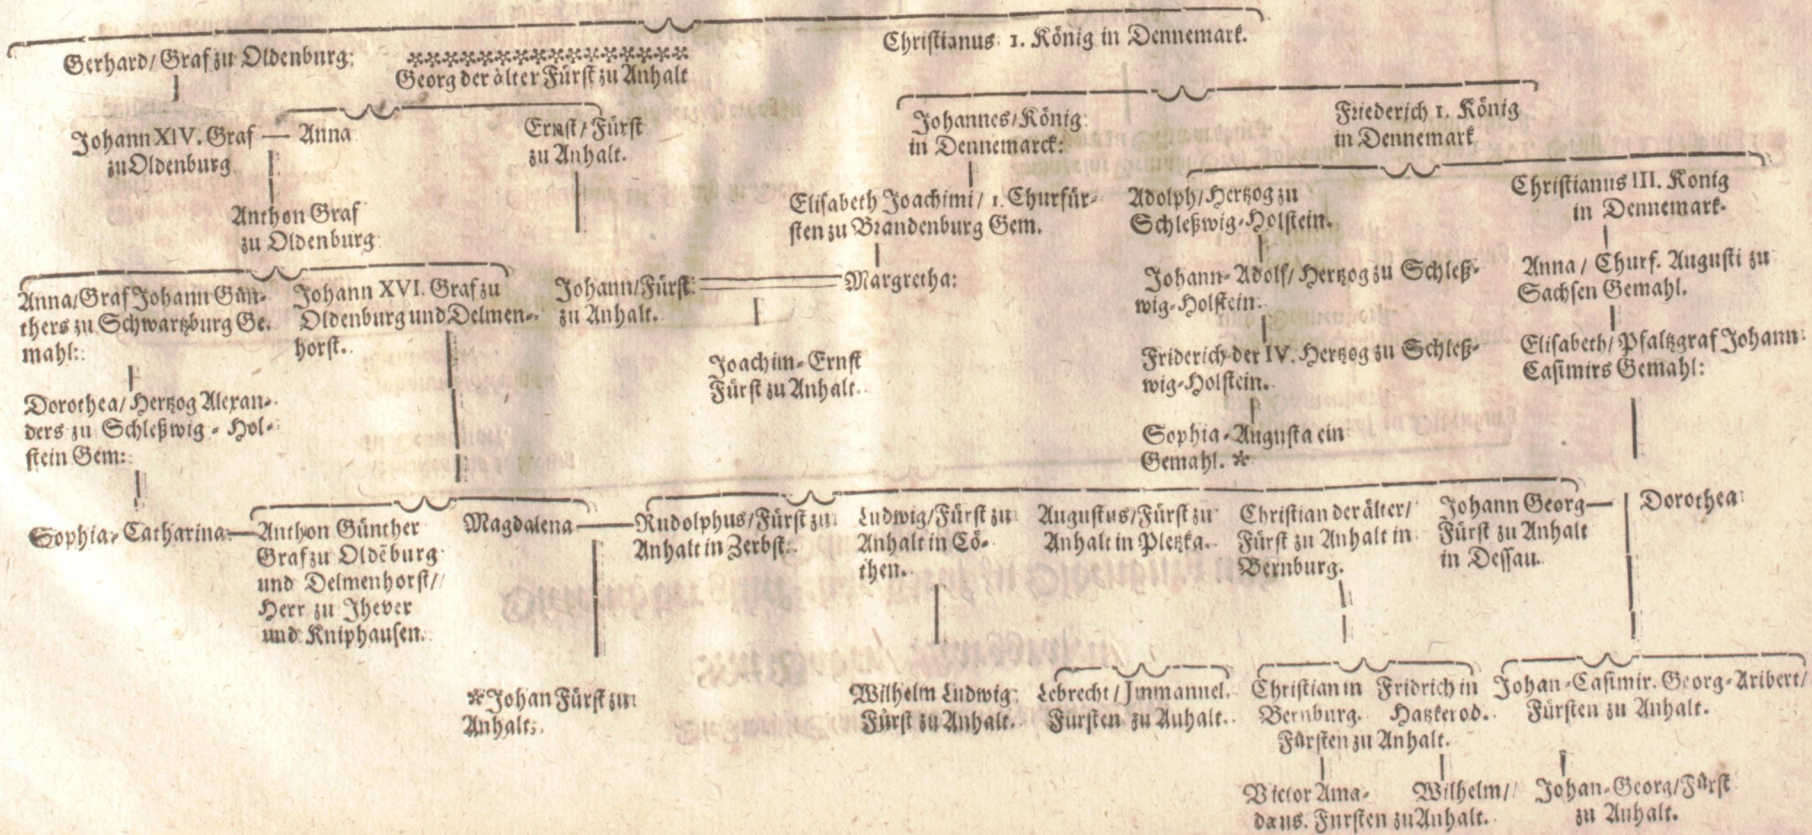 Gerhard/Graf zu Oldenburg:
Georg der älter Fürst zu Anhalt
Christianus 1. König in Dennemark.
Johann XIV. Graf
zu Oldenburg
Anna
Ernst/Fürst
zu Anhalt.
Johannes/König
in Dennemarck:
Friederich 1. König
in Dennemark
Anthon Graf
zu Oldenburg
Elisabeth Joachimi/ 1. Churfür-
sten zu Brandenburg Gem.
Adolph/Hertzog zu
Schleßwig-Holstein.
Christianus III. Konig
in Dennemark.
Anna/Graf Johann Gün-
thers zu Schwartzburg Ge-
mahl:
Johann XVI. Graf zu
Oldenburg und Delmen-
horst.
Johann/Fürst
zu Anhalt.
Margretha:
Johann-Adolf/Hertzog zu Schleß-
wig-Holstein.
Anna/ Churf. Augusti zu
Sachsen Gemahl.
Joachim-Ernst
Fürst zu Anhalt.
Friderich der IV. Hertzog zu Schleß-
wig-Holstein.
Elisabeth/Pfaltzgraf Johann
Casimirs Gemahl:
Dorothea/Hertzog Alexan-
ders zu Schleßwig-Hol-
stein Gem:
Sophia-Augusta ein
Gemahl. *
Sophia-Catharina
Anthon Günther
Graf zu Oldēburg
und Delmenhorst/
Herr zu Jhever
und Kniphausen.
Magdalena
Rudolphus/Fürst zu
Anhalt in Zerbst.
Ludwig/Fürst zu
Anhalt in Cö-
then.
Augustus/Fürst zu
Anhalt in Pletzka.
Christian der älter/
Fürst zu Anhalt in
Bernburg.
Johann Georg
Fürst zu Anhalt
in Dessau.
Dorothea
*Johan Fürst zu
Anhalt.
Wilhelm Ludwig
Fürst zu Anhalt.
Lebrecht/Immanuel.
Fürsten zu Anhalt.
Christian in
Bernburg.
Fridrich in
Hatzkerod.
Fürsten zu Anhalt.
Johan-Casimir. Georg-Aribert/
Fürsten zu Anhalt.
Victor Ama-
dæus. Fursten zu Anhalt.
Wilhelm/
Johan-Georg/Fürst
zu Anhalt.